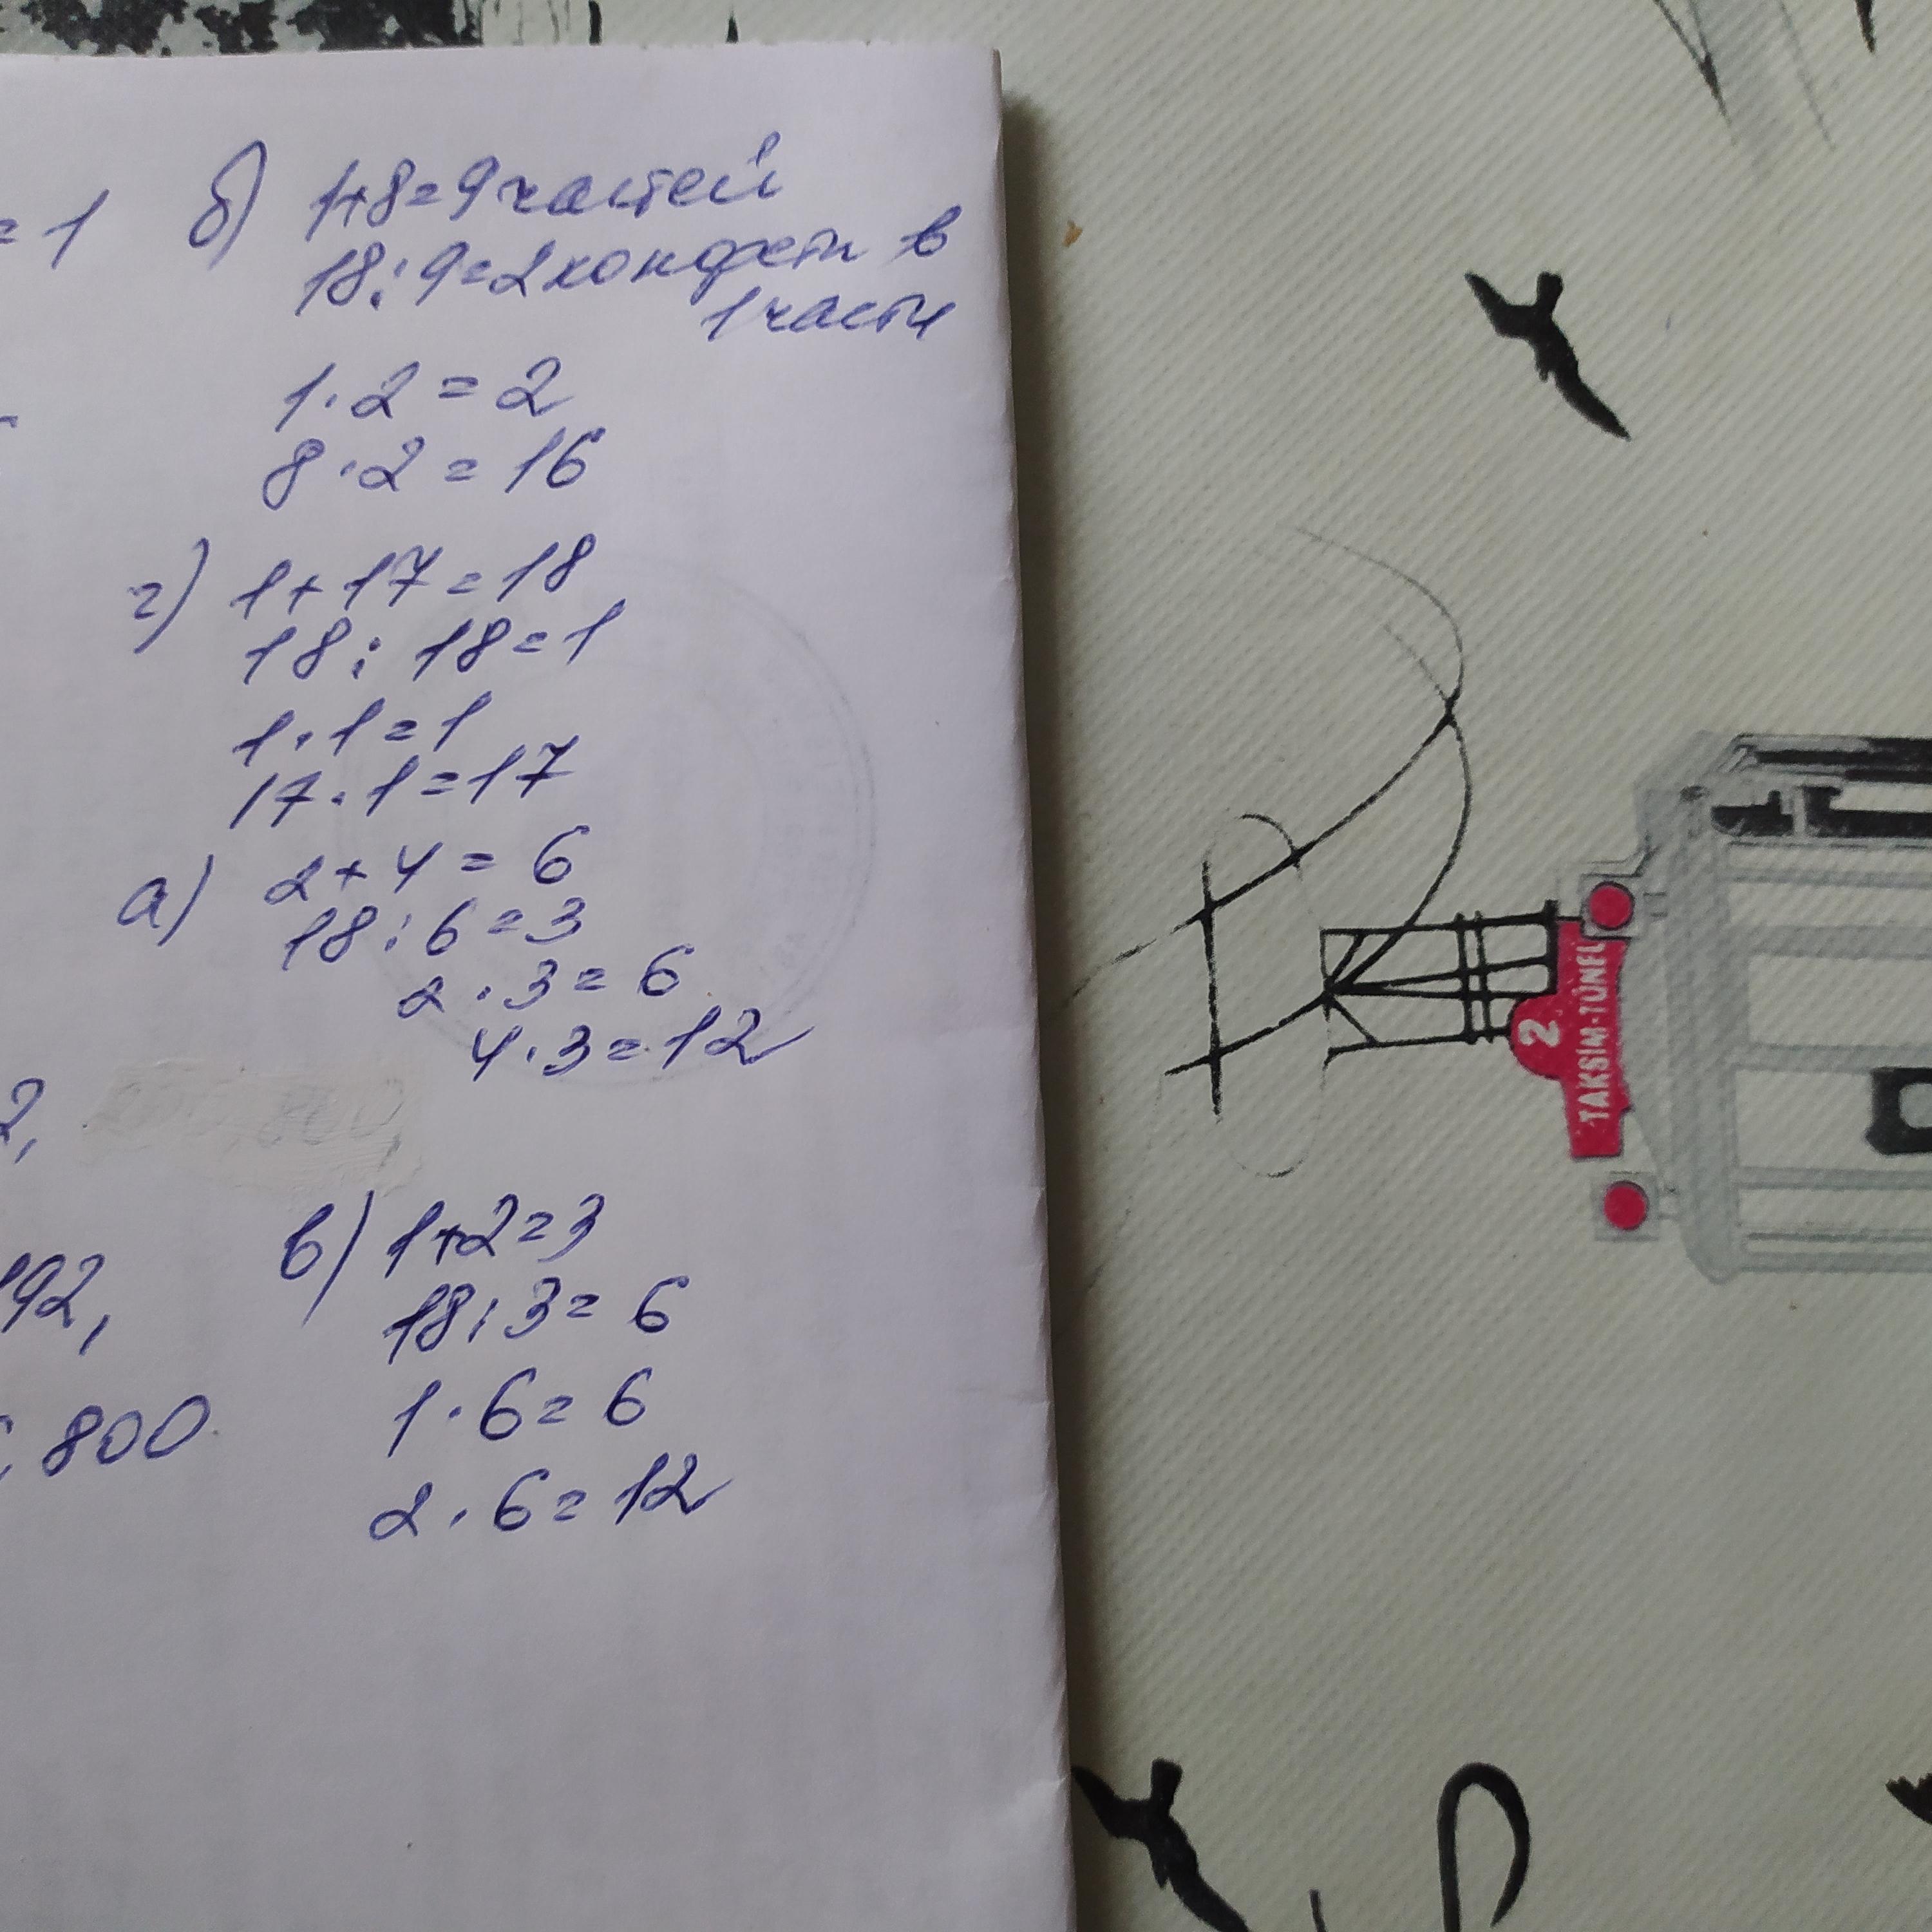 = 1
б) 1+8=9 частей
18:9=2 конфеты в
1 части
1·2=2
8·2=16
г) 1+17=18
18:18=1
1·1=1
17·1=17
а) 2+4=6
18:6=3
2·3=6
4·3=12
2,
в) 1+2=3
192,
18:3=6
1·6=6
800
2·6=12
2
TAKSİM-TÜNEL